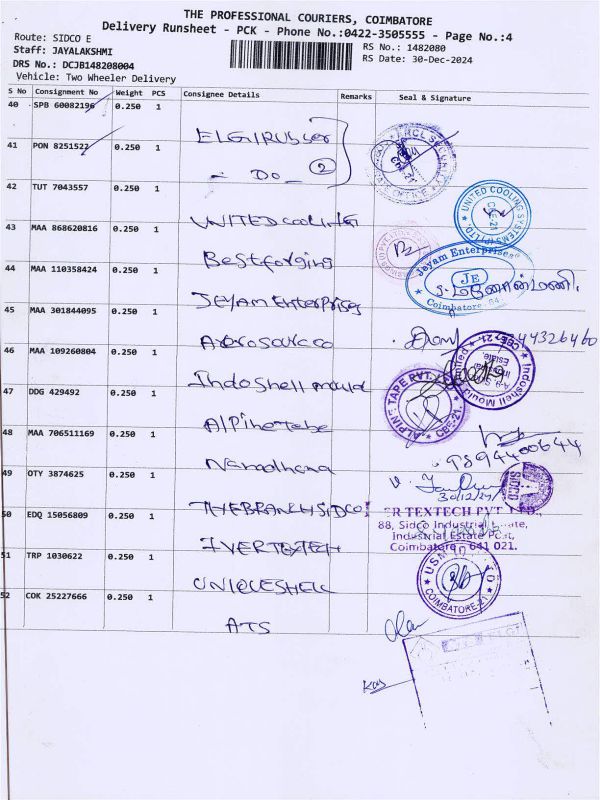 THE PROFESSIONAL COURIERS, COIMBATORE
Delivery Runsheet - PCK - Phone No.:0422-3505555 - Page No.:4
Route: SIDCO E
Staff: JAYALAKSHMI
DRS No.: DCJB148208004
Vehicle: Two Wheeler Delivery
RS No.: 1482080
RS Date: 30-Dec-2024
S No Consignment No Weight PCS Consignee Details Remarks Seal & Signature
40 SPB 60082196 0.250 1
ELGIRUBBER
41 PON 8251522 0.250 1
- DO - 2
42 TUT 7043557 0.250 1
UNITED COOLING
UNITED COOLING SYSTEMS (P) LTD
CBE-21
43 MAA 868620816 0.250 1
Bestforging
44 MAA 110358424 0.250 1
Jeyam Enterprises
Jeyam Enterprises
JE
Coimbatore
45 MAA 301844095 0.250 1
46 MAA 109260804 0.250 1
Indoshell mould
Indoshell Mould Limited
CBE-21
Estate
47 DDG 429492 0.250 1
Alpinetape
ALPINE TAPE PVT
CBE-21.
48 MAA 706511169 0.250 1
Namdhana
9894400644
49 OTY 3874625 0.250 1
THEBRANCHSIDCO
30/12/24
SIDCO
50 EDQ 15056809 0.250 1
IVERTEXTECH
ER TEXTECH PVT LTD.
88, Sidco Industrial Estate,
Industrial Estate Post,
Coimbatore 641 021.
51 TRP 1030622 0.250 1
UNIQUESHELL
COIMBATORE-21
52 COK 25227666 0.250 1
ATS